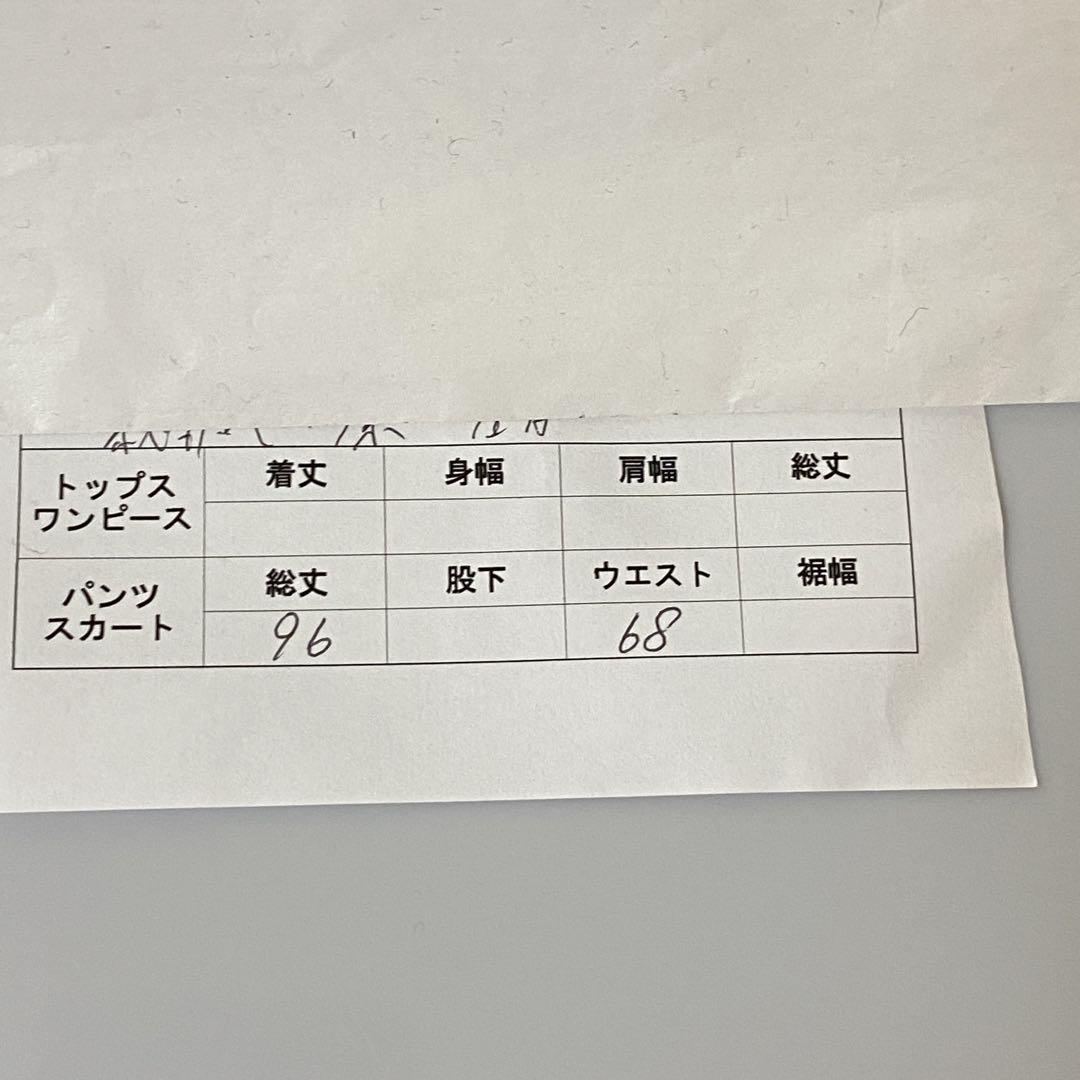 トップス 着丈 身幅 肩幅 総丈
ワンピース
パンツ 総丈 股下 ウエスト 裾幅
スカート 96 68